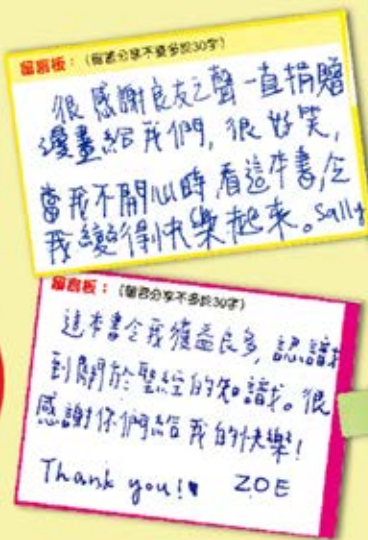 留言板：（留言分享不要多於30字）
很感謝良友之聲一直捐贈
漫畫給我們，很好笑，
當我不開心時，看這本書，令
我變得快樂起來。Sally
留言板：（留言分享不多於30字）
這本書令我獲益良多，認識
到關於聖經的知識。很
感謝你們給我的快樂！
Thank you!♥ ZOE